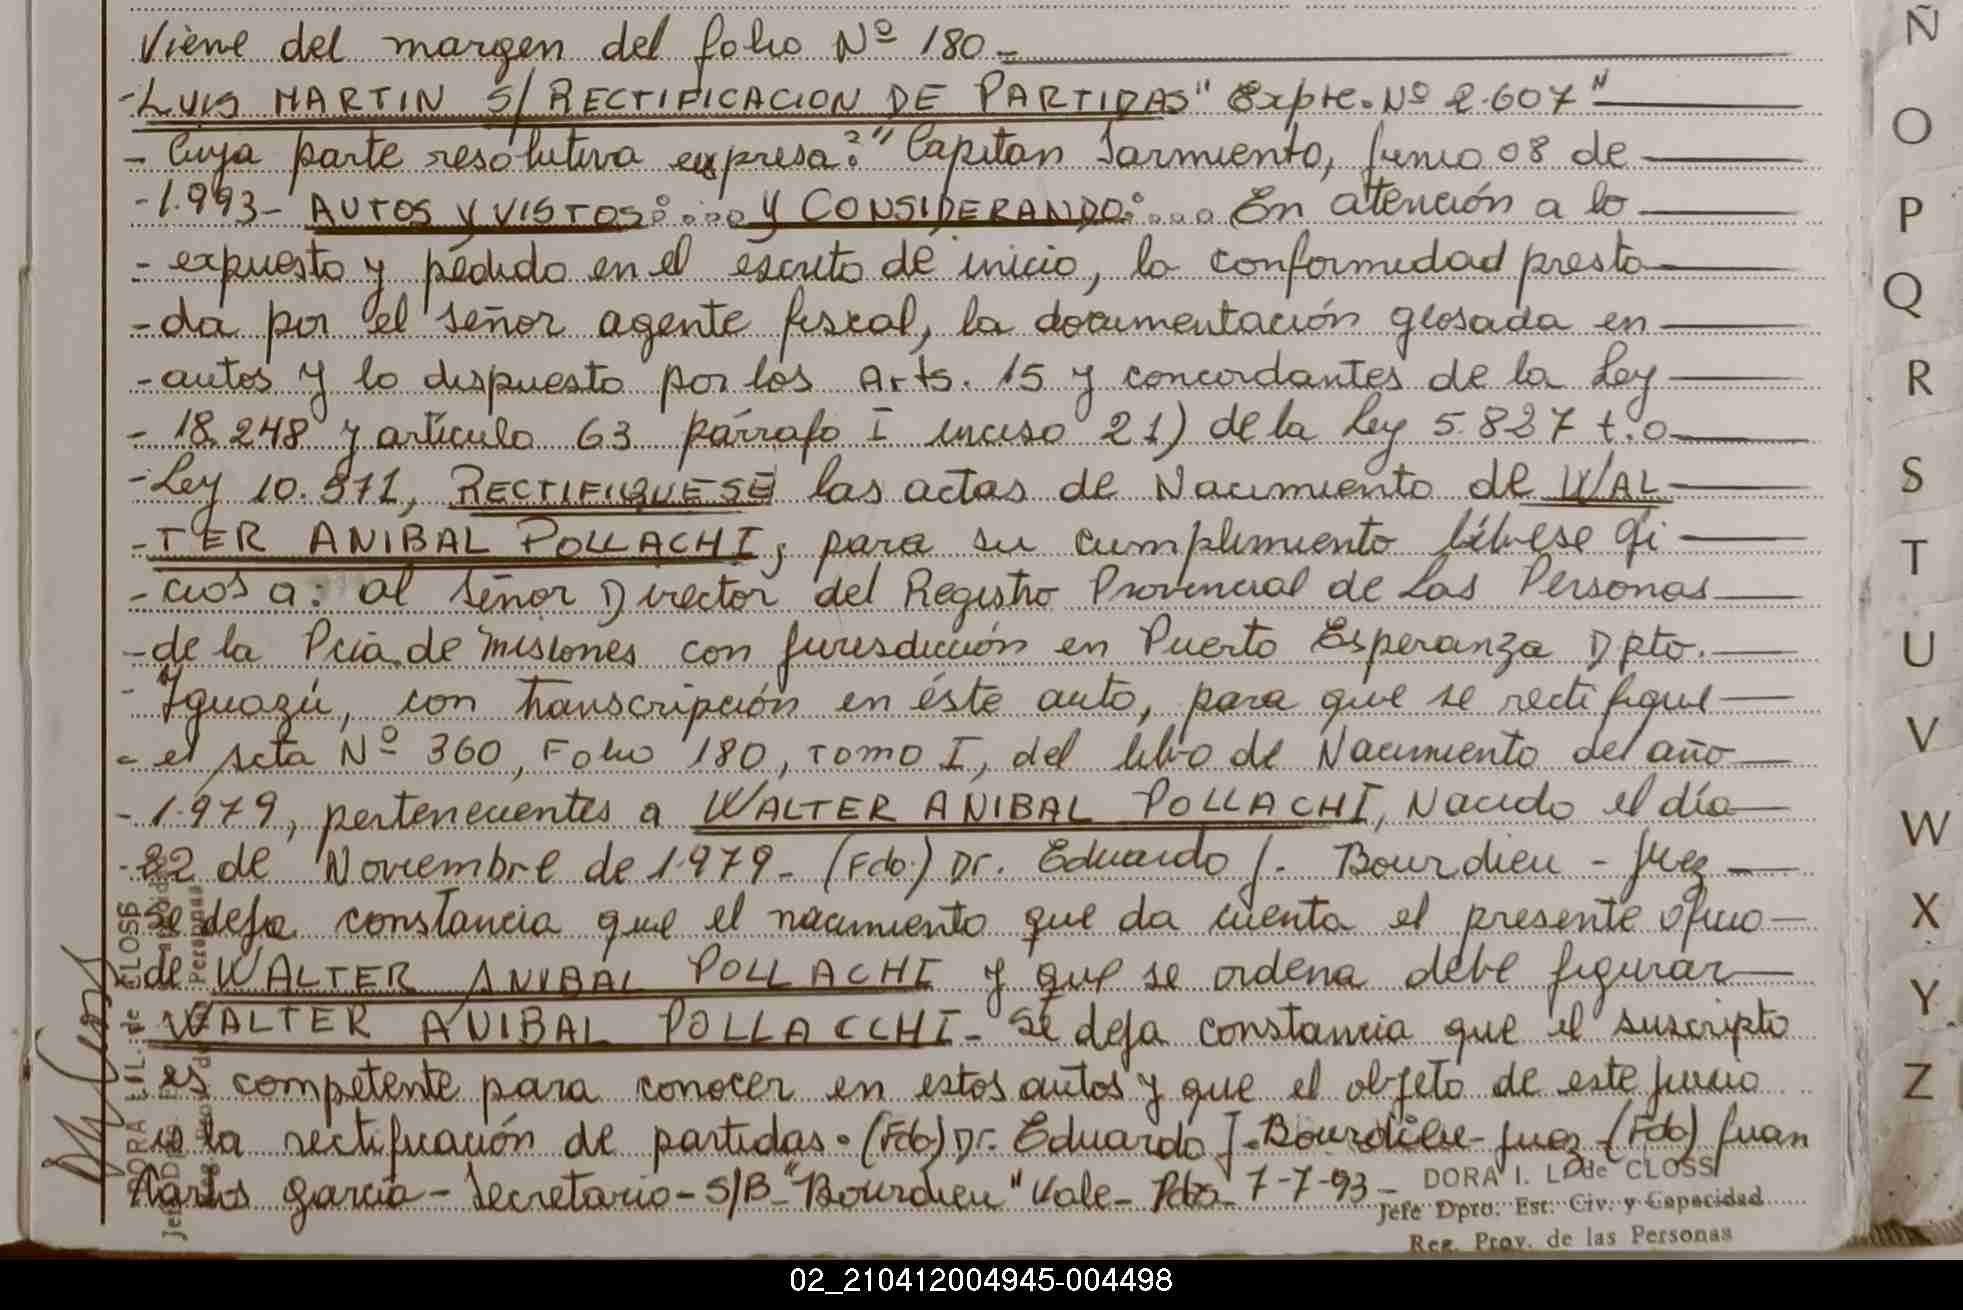 Viene del margen del folio Nº 180-
-LUIS MARTIN S/ RECTIFICACION DE PARTIDAS" Expte. Nº 2.607"
- Cuya parte resolutiva expresa: "Capitan Sarmiento, Junio 08 de
-1.993- AUTOS Y VISTOS:.... Y CONSIDERANDO:.... En atención a lo
- expuesto y pedido en el escrito de inicio, la conformidad presta
-da por el señor agente fiscal, la documentación glosada en
-autos y lo dispuesto por los Arts. 15 y concordantes de la Ley
- 18.248 y artículo 63 párrafo I inciso 21) de la Ley 5.827 t.o
-Ley 10.571, RECTIFIQUESE las actas de Nacimiento de WAL
-TER ANIBAL POLLACHI, para su cumplimiento líbrese ofi
-cios a: al Señor Director del Registro Provincial de Las Personas
-de la Pcia de Misiones con Jurisdicción en Puerto Esperanza Dpto.
- Iguazú, con transcripción en éste auto, para que se rectifique
- el Acta Nº 360, Folio 180, TOMO I, del libro de Nacimiento del año
- 1.979, pertenecientes a WALTER ANIBAL POLLACHI, Nacido el día
-22 de Noviembre de 1.979- (Fdo.) Dr. Eduardo J. Bourdieu - Juez
Se deja constancia que el nacimiento que da cuenta el presente oficio
de WALTER ANIBAL POLLACHI y que se ordena debe figurar
WALTER ANIBAL POLLACCHI- Se deja constancia que el suscripto
es competente para conocer en estos autos y que el objeto de este juicio
es la rectificación de partidas. (Fdo) Dr. Eduardo J. Bourdieu- Juez - (Fdo) Juan
Carlos García - Secretario - S/B "Bourdieu" Vale- Pdas- 7-7-93-
DORA I. L. de CLOSS
Jefe Dpto. Est. Civ. y Capacidad
Reg. Prov. de las Personas
Ñ
O
P
Q
R
S
T
U
V
W
X
Y
Z
02_210412004945-004498